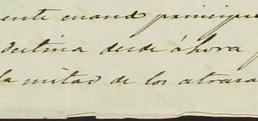 ente cuando principie
destina desde ahora
la mitad de los atrasa